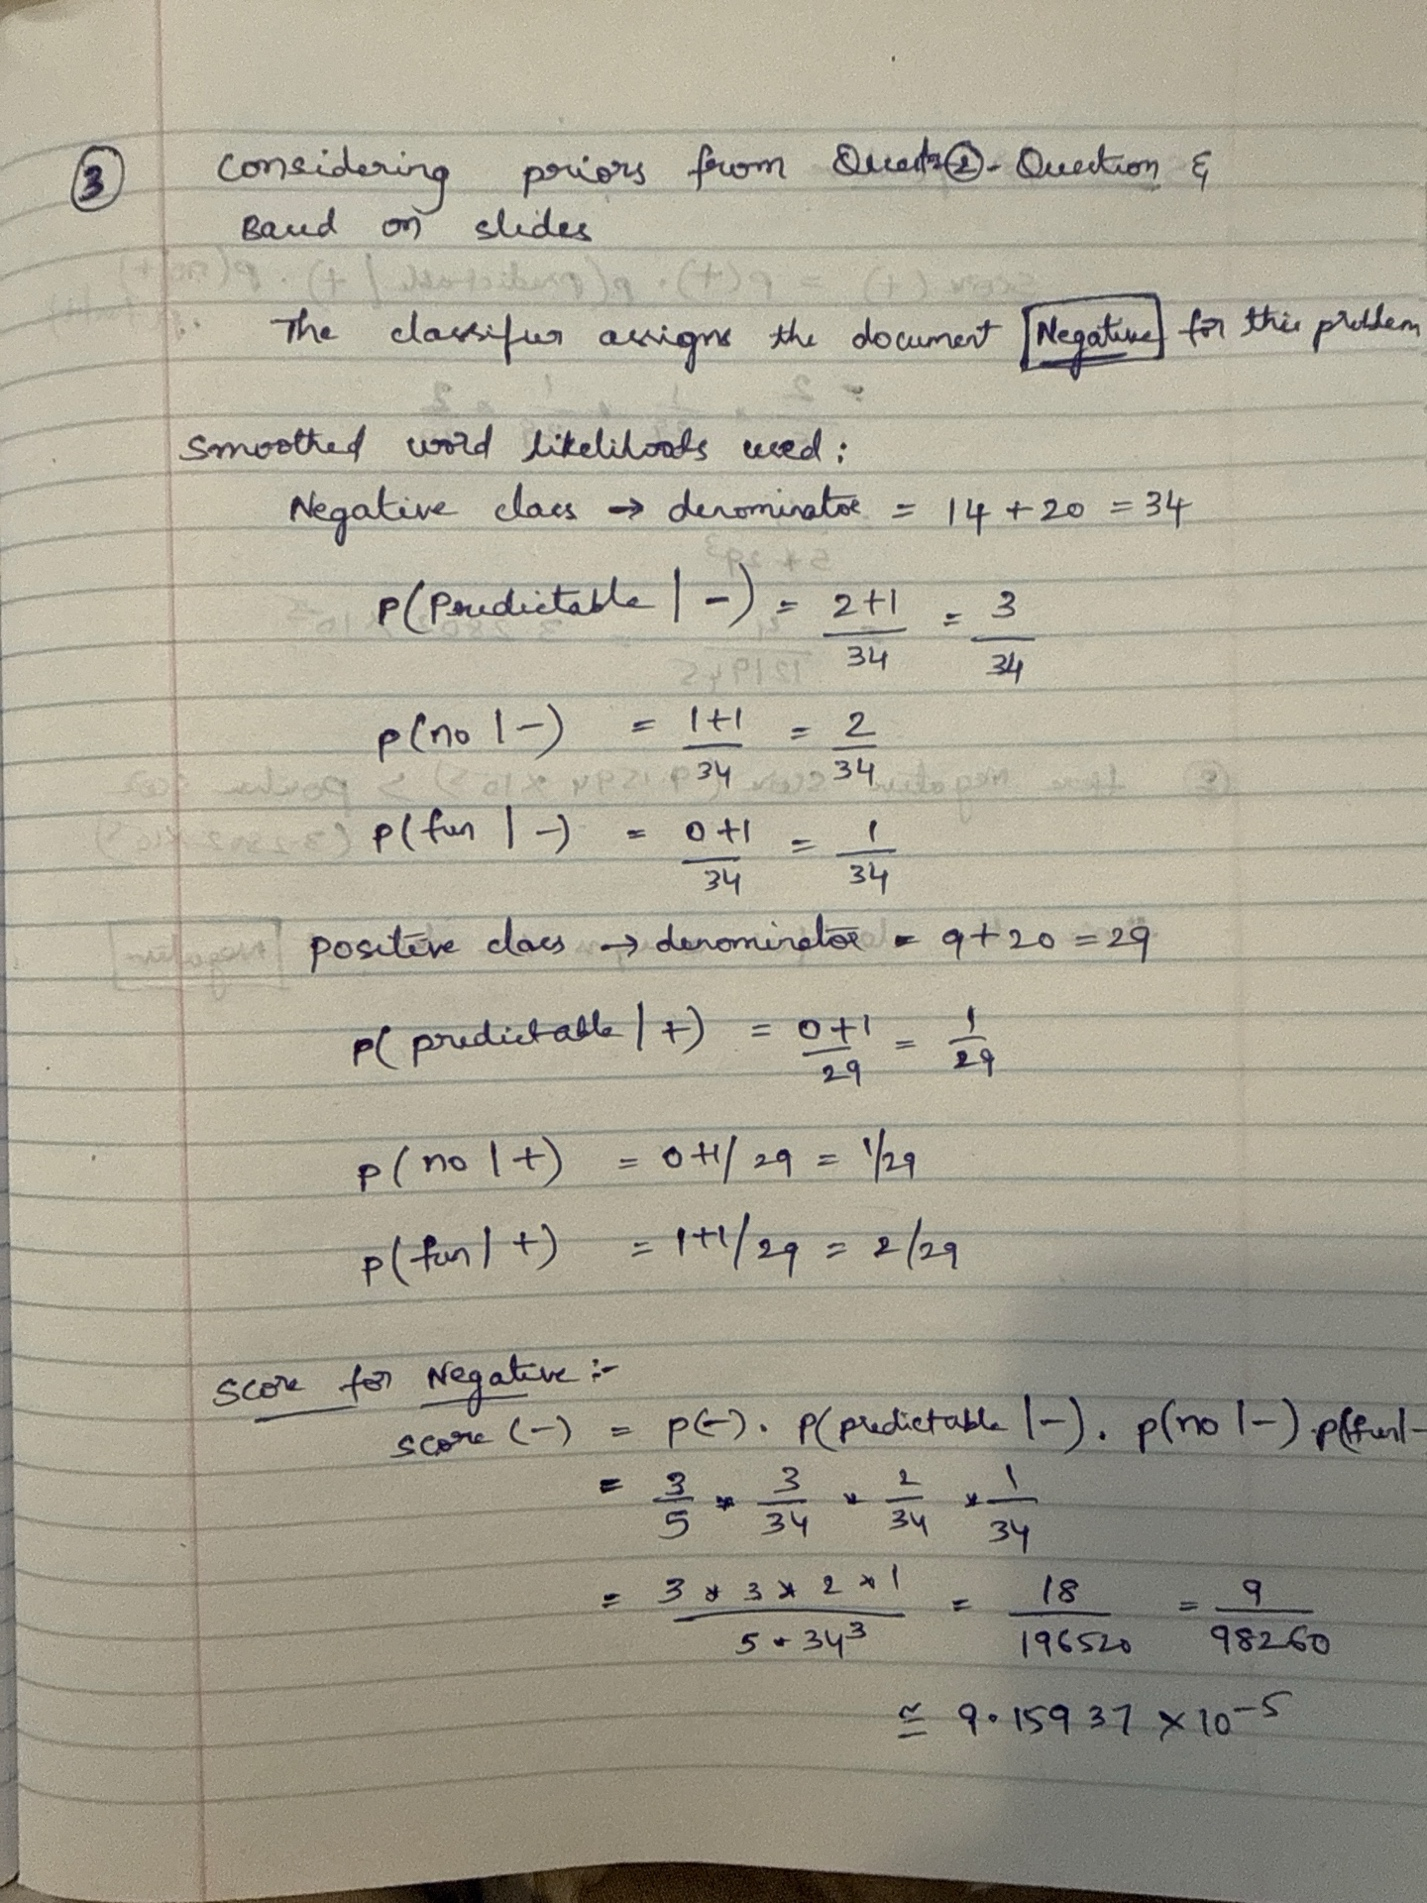 ③ Considering priors from Quest② - Question &
Based on slides
The classifier assigns the document Negative for this problem
Smoothed word likelihoods used :
Negative class → denominator = 14 + 20 = 34
P(Predictable | -) = 2+1/34 = 3/34
P(no | -) = 1+1/34 = 2/34
P(fun | -) = 0+1/34 = 1/34
positive class → denominator = 9 + 20 = 29
P( predictable | +) = 0+1/29 = 1/29
P( no | +) = 0+1/29 = 1/29
P( fun | +) = 1+1/29 = 2/29
Score for Negative :-
Score (-) = P(-). P(predictable | -). P(no | -) . P(fun | -
= 3/5 * 3/34 * 2/34 * 1/34
= 3 * 3 * 2 * 1 / 5 * 34³ = 18/196520 = 9/98260
≅ 9.15937 × 10⁻⁵